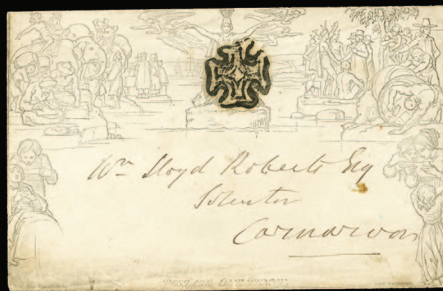 Wm Lloyd Roberts Esq
Solicitor
Carnarvon